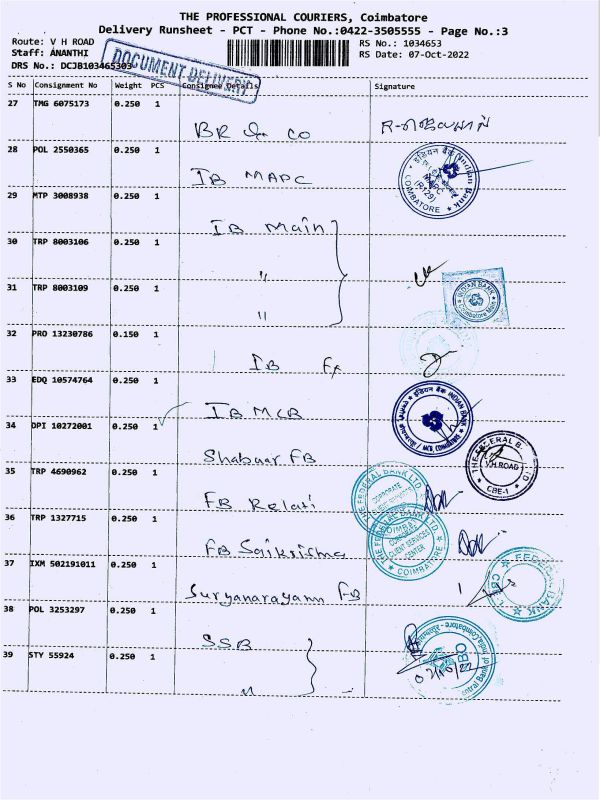 THE PROFESSIONAL COURIERS, Coimbatore
Delivery Runsheet - PCT - Phone No.:0422-3505555 - Page No.:3
Route: V H ROAD
RS No.: 1034653
Staff: ANANTHI
RS Date: 07-Oct-2022
DRS No.: DCJB103465303
DOCUMENT DELIVERY
S No Consignment No Weight PCS Consignee Details Signature
27 TMG 6075173 0.250 1
BR & CO
28 POL 2550365 0.250 1
IB MAPC
29 MTP 3008938 0.250 1
IB Main
30 TRP 8003106 0.250 1
"
31 TRP 8003109 0.250 1
"
32 PRO 13230786 0.150 1
IB Fx
33 EDQ 10574764 0.250 1
IB MCB
34 DPI 10272001 0.250 1
Shabaar FB
35 TRP 4690962 0.250 1
FB Relati
36 TRP 1327715 0.250 1
FB Saikrishna
37 IXM 502191011 0.250 1
Suryanarayann FB
38 POL 3253297 0.250 1
SSB
39 STY 55924 0.250 1
"
इंडियन बैंक Indian Bank
MAPC
COIMBATORE
INDIAN BANK
Coimbatore Main
INDIAN BANK
MCB, COIMBATORE
THE FEDERAL B
V.H ROAD
CBE-1
THE FEDERAL BANK LTD.
CORPORATE
THE FEDERAL BANK LTD.
CORPORATE
CLIENT SERVICES
CENTER
COIMBATORE
FEDERAL BANK
07/10/22